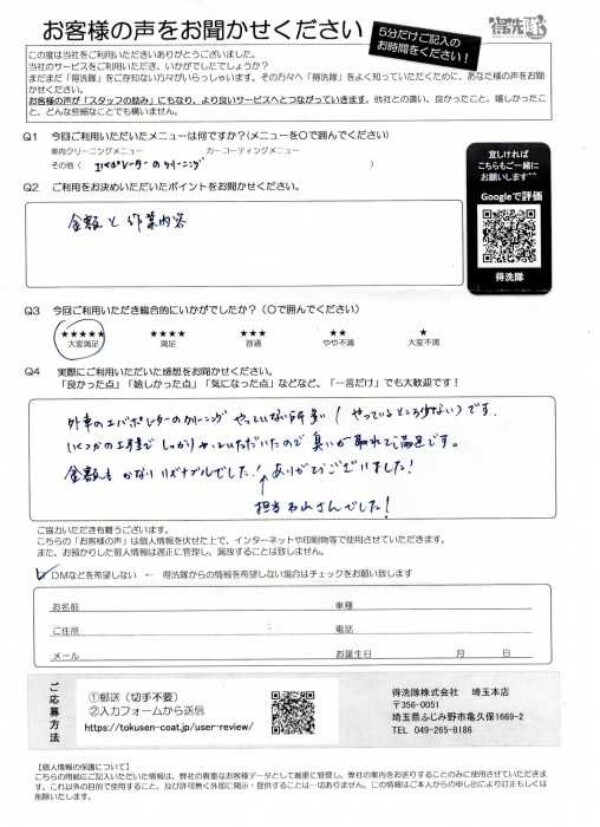 お客様の声をお聞かせください
5分だけご記入の
お時間をください！
得洗隊
この度は当社をご利用いただきありがとうございました。
当社のサービスをご利用いただき、いかがでしたでしょうか？
まだまだ「得洗隊」をご存知ない方々がいらっしゃいます。その方々へ「得洗隊」をよく知っていただくために、あなた様の声をお聞かせください。
お客様の声が「スタッフの励み」にもなり、より良いサービスへとつながっていきます。他社との違い、良かったこと、嬉しかったこと、どんな些細なことでも構いません。
Q1 今回ご利用いただいたメニューは何ですか？(メニューを○で囲んでください)
車内クリーニングメニュー カーコーティングメニュー
その他（ エバポレーターのクリーニング ）
Q2 ご利用をお決めいただいたポイントをお聞かせください。
金額と作業内容
宜しければ
こちらもご一緒に
お願いします^^
Googleで評価
得洗隊
Q3 今回ご利用いただき総合的にいかがでしたか？(○で囲んでください)
★★★★★ ★★★★ ★★★ ★★ ★
大変満足 満足 普通 やや不満 大変不満
Q4 実際にご利用いただいた感想をお聞かせください。
「良かった点」「嬉しかった点」「気になった点」などなど、「一言だけ」でも大歓迎です！
外車のエバポレーターのクリーニング やっていない所多い(やっているところ少ない)です。
いくつかの工程で しっかりやっていただいたので 臭いが取れて満足です。
金額も かなりリーズナブルでした！ ありがとうございました！
担当 さんでした！
ご協力いただき有難うございます。
こちらの「お客様の声」は個人情報を伏せた上で、インターネットや印刷物等で使用させていただきます。
また、お預かりした個人情報は適正に管理し、漏洩することは致しません。
DMなどを希望しない ← 得洗隊からの情報を希望しない場合はチェックをお願い致します
お名前 車種
ご住所 電話
メール お誕生日 月 日
ご応募方法
①郵送（切手不要）
②入力フォームから送信
https://tokusen-coat.jp/user-review/
得洗隊株式会社 埼玉本店
〒356-0051
埼玉県ふじみ野市亀久保1669-2
TEL 049-265-8186
【個人情報の保護について】
こちらの用紙にご記入いただいた情報は、弊社の貴重なお客様データとして厳重に管理し、弊社の案内をお送りすることのみに使用させていただきます。これ以外の目的で使用すること、及び許可無く外部に開示・提供することは一切ありません。この情報はご本人からの申し出により訂正もしくは削除いたします。